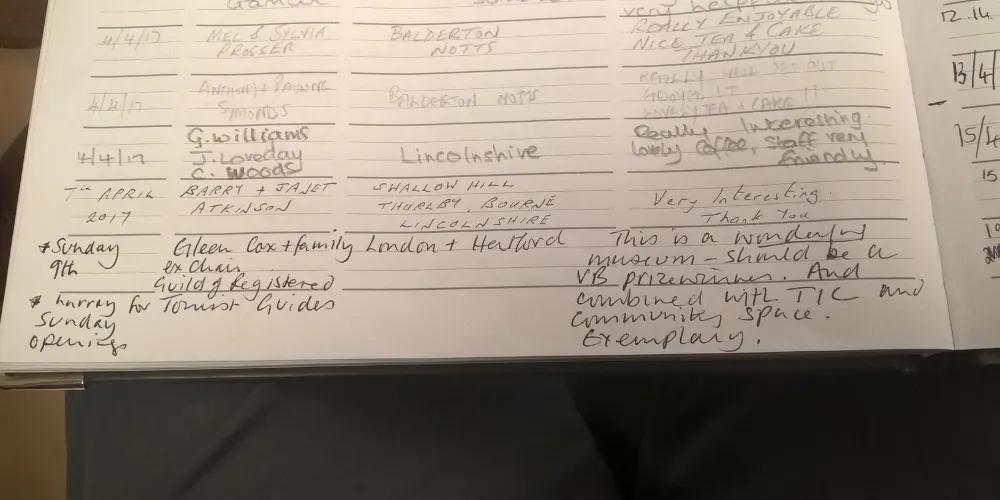 very help
4/4/17 MEL & SYLVIA PROSSER BALDERTON NOTTS REALLY ENJOYABLE
NICE TEA & CAKE
THANKYOU
4/4/17 ANTHONY + PAULINE SYMONDS BALDERTON NOTTS REALLY WELL SET OUT
LOVELY TEA + CAKE !!
4/4/17 G. Williams
J. Loveday
C. Woods
Lincolnshire
Really Interesting.
lovely coffee, staff very
friendly.
7TH APRIL
2017
BARRY + JANET
ATKINSON
SHALLOW HILL
THURLBY, BOURNE
LINCOLNSHIRE
Very Interesting.
Thank You
* Sunday
9th
Eileen Cox + family London + Hertford
ex chair
Guild of Registered
Tourist Guides
* hurray for
Sunday
openings
This is a wonderful
museum – should be a
VB prizewinner. And
combined with TIC and
community space.
Exemplary.
12.14.
13/4/
15/4
15